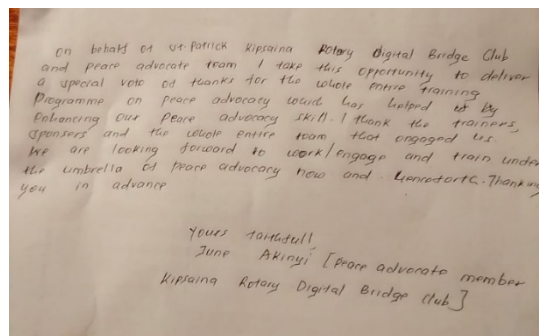 On behalf of St. Patrick Kipsaina Rotary Digital Bridge Club
and peace advocate team I take this opportunity to deliver
a special vote of thanks for the whole entire training
Programme on peace advocacy which has helped us by
Enhancing our Peace advocacy skill. I thank the trainers,
sponsers and the whole entire team that engaged us.
We are looking forward to work/engage and train under
the umbrella of peace advocacy now and henceforth. Thanking
you in advance
Yours faithfull,
June Akinyi [peace advocate member
Kipsaina Rotary Digital Bridge Club]